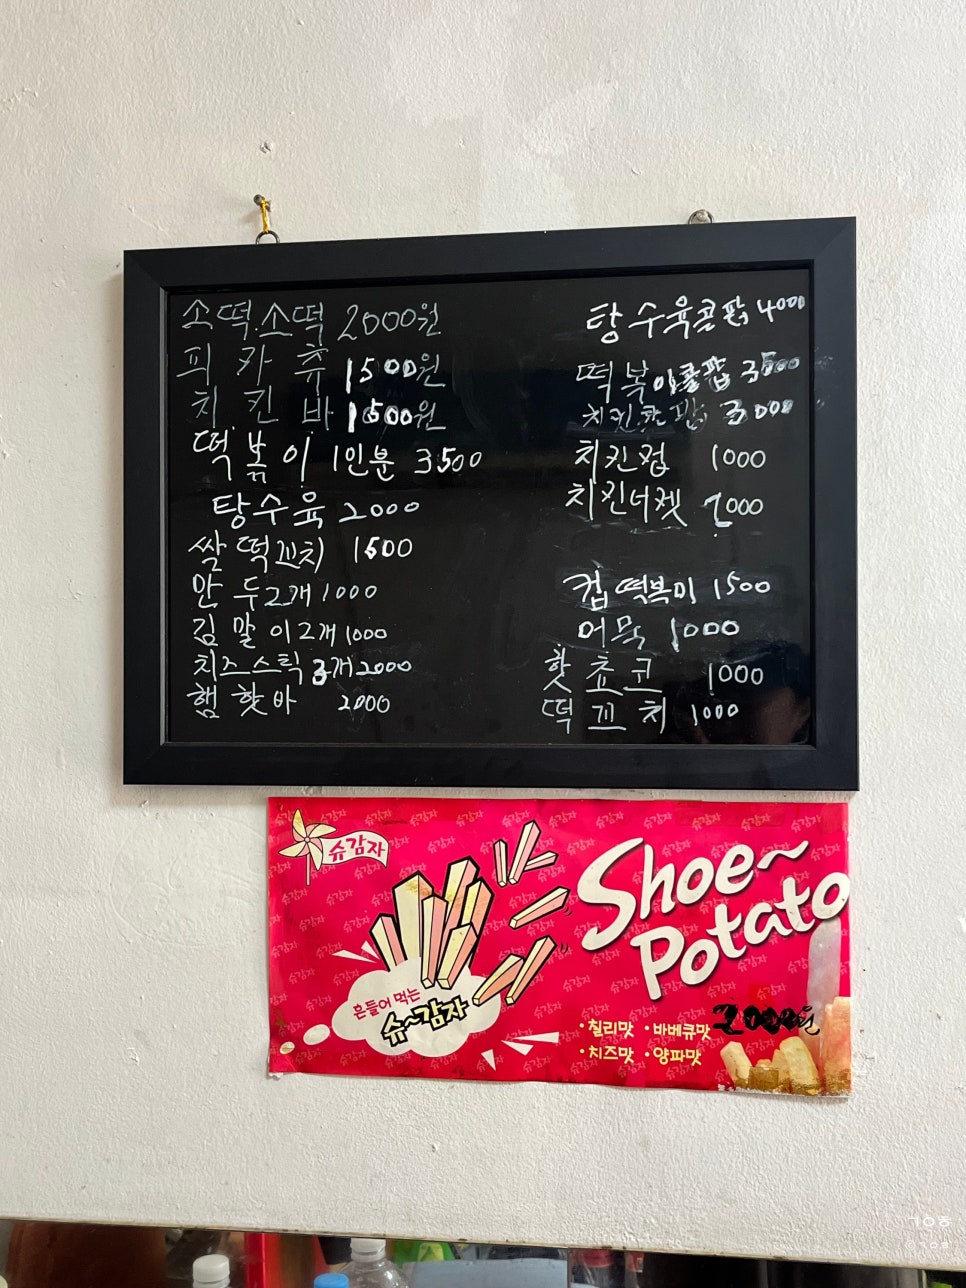 소떡.소떡 2000원
피카츄 1500원
치킨바 1500원
떡볶이 1인분 3500
탕수육 2000
쌀떡꼬치 1500
만두2개 1000
김말이2개 1000
치즈스틱 3개 2000
햄핫바 2000
탕수육콜팝 4000
떡볶이콜팝 3500
치킨콜팝 3000
치킨컵 1000
치킨너겟 2000
컵떡볶이 1500
어묵 1000
핫쵸코 1000
떡꼬치 1000
슈감자
Shoe~
Potato
흔들어 먹는
슈~감자
·칠리맛 ·바베큐맛 2000원
·치즈맛 ·양파맛